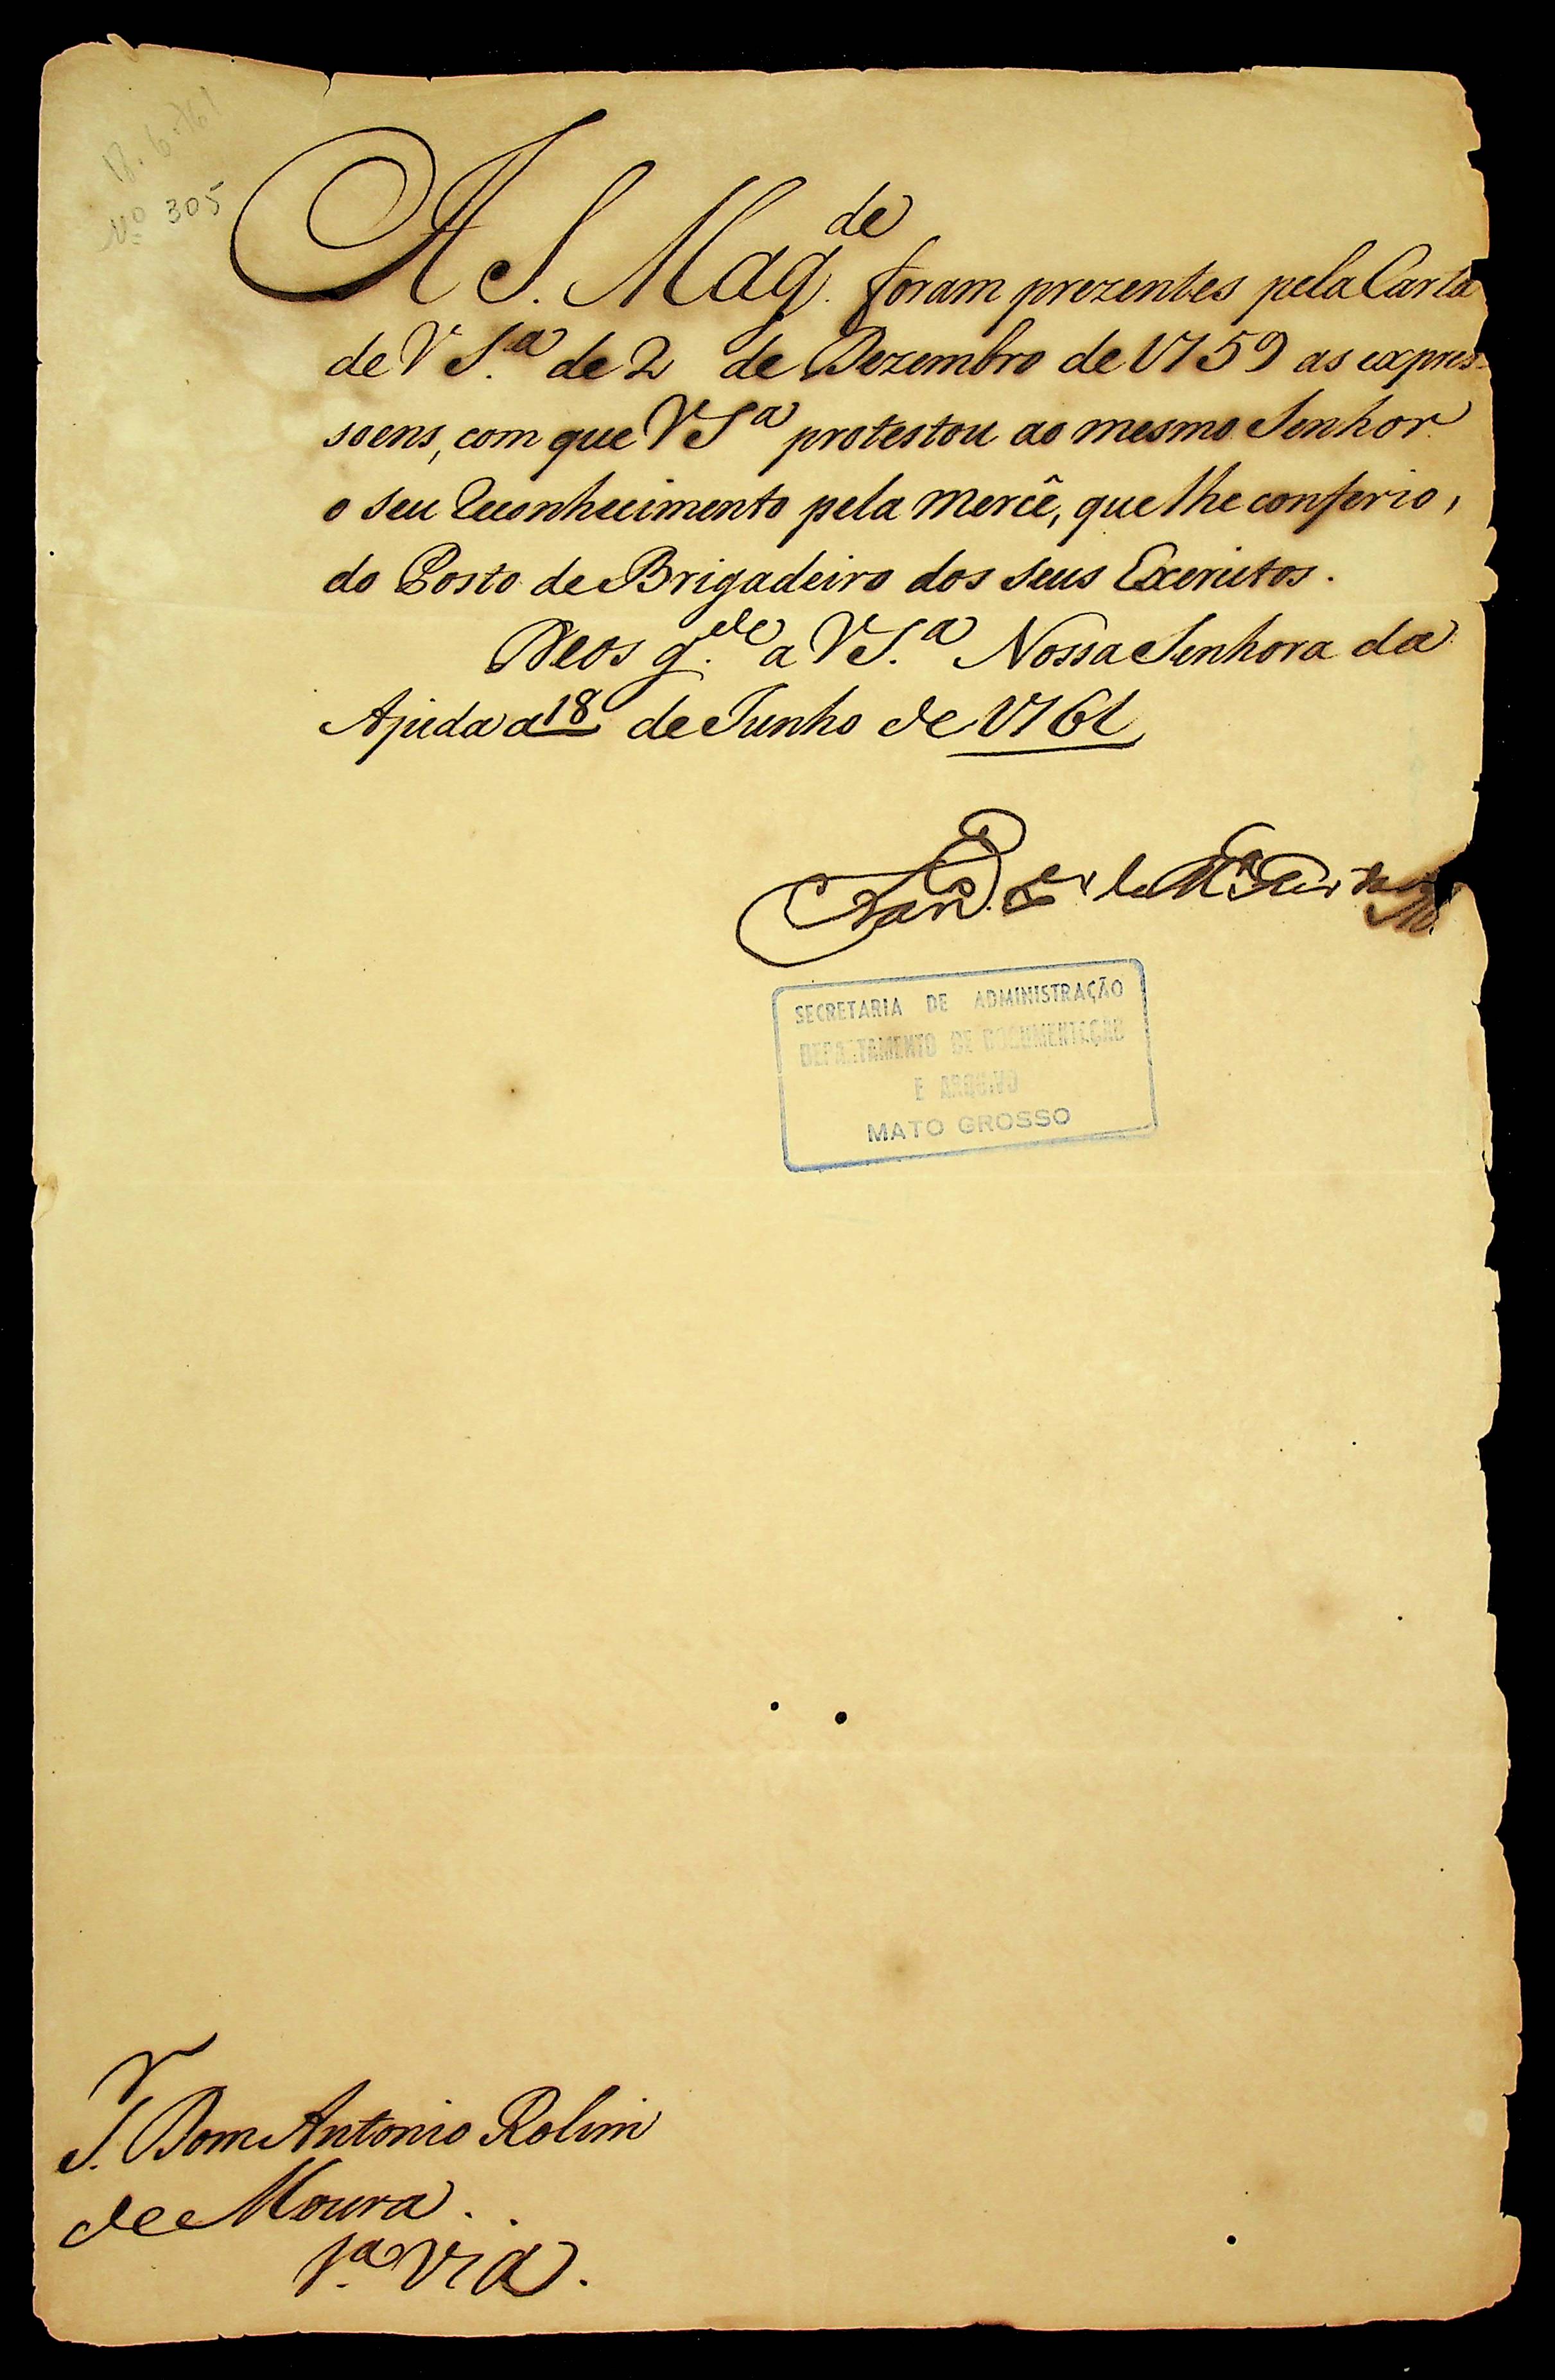 18.6.761
Nº 305
A S. Mag.de foram prezentes pela Carta
de V S.a de 2 de Dezembro de 1759 as expres-
soens, com que VS.a protestou ao mesmo Senhor
o seu Reconhecimento pela Mercê, que lhe conferio,
do Posto de Brigadeiro dos seus Exercitos.
Deos g.de a VS.a Nossa Senhora da
Ajuda a 18 de Junho de 1761
SECRETARIA DE ADMINISTRAÇÃO
DEPARTAMENTO DE DOCUMENTAÇÃO
E ARQUIVO
MATO GROSSO
S.r Dom Antonio Rolim
de Moura.
1.a Via.